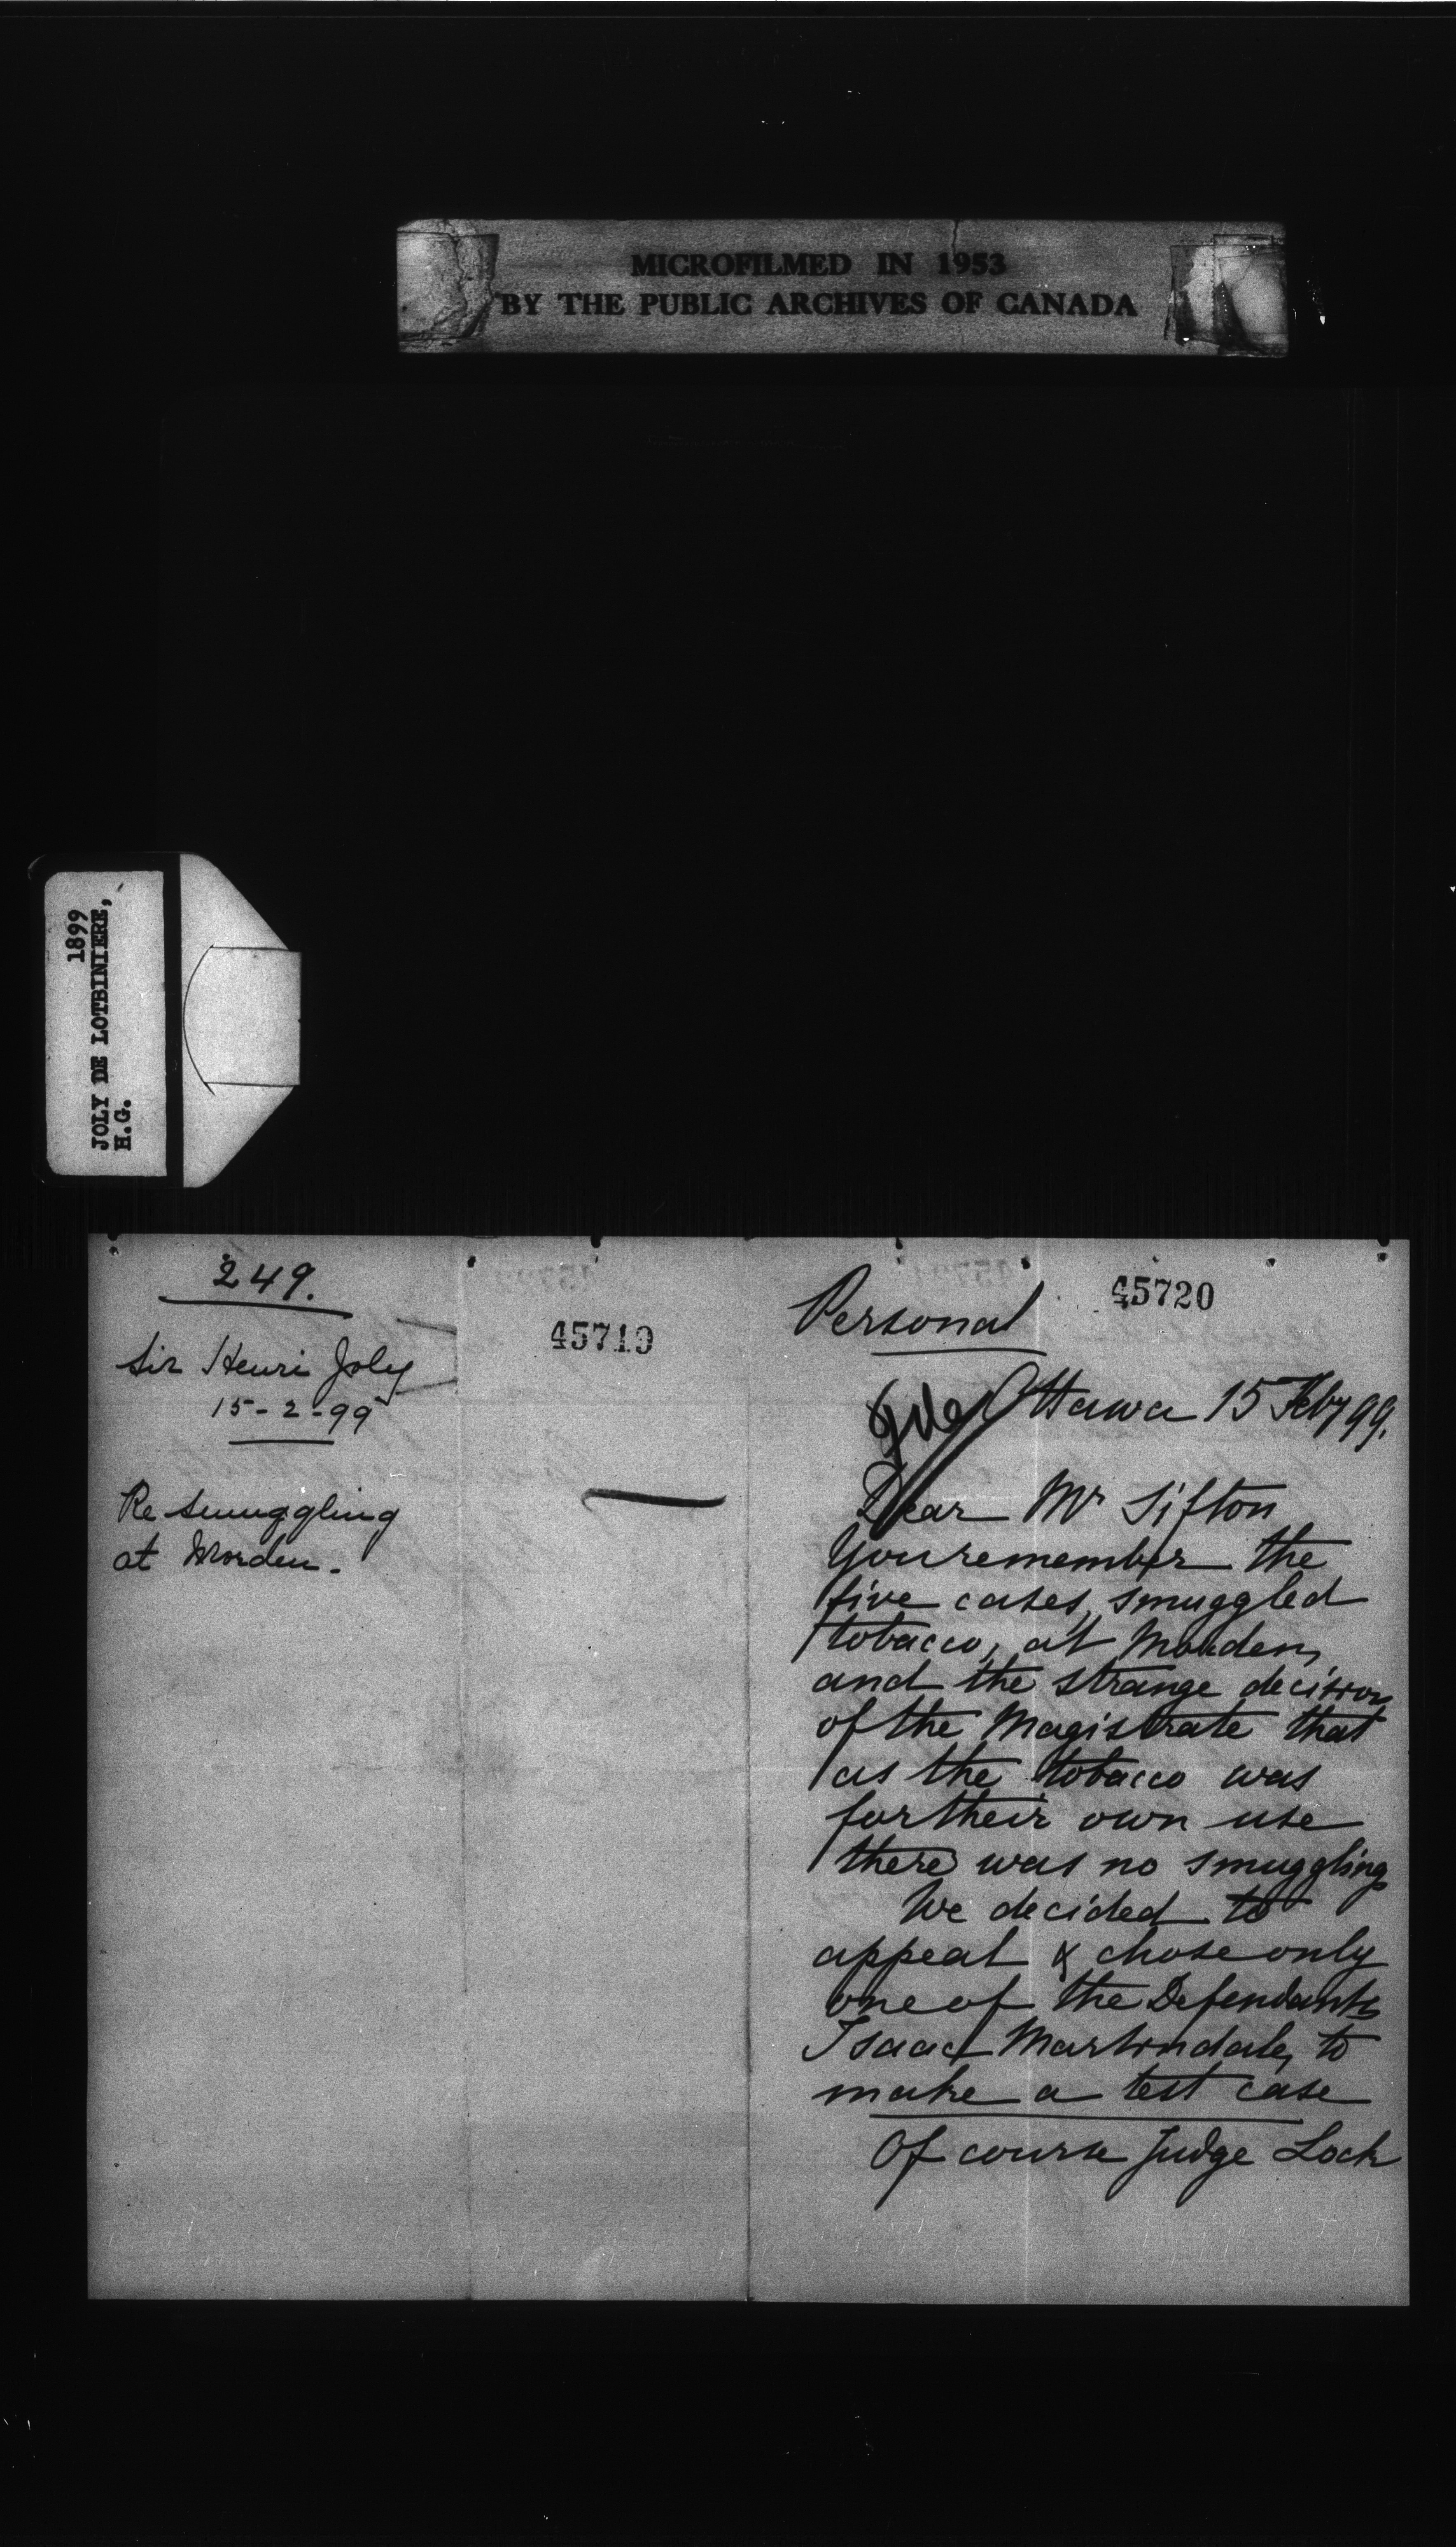 MICROFILMED IN 1953
BY THE PUBLIC ARCHIVES OF CANADA
1899
JOLY DE LOTBINIERE,
H.G.
249.
Sir Henri Joly
15-2-99
Re smuggling
at Morden.
45719
45720
Personal
File
Ottawa 15 Feby 99.
Dear Mr Sifton
You remember the
five cases, smuggled
tobacco, at Morden,
and the strange decision
of the Magistrate that
as the tobacco was
for their own use
there was no smuggling
We decided to
appeal & chose only
one of the Defendants
Isaac Martindale, to
make a test case
Of course Judge Lock